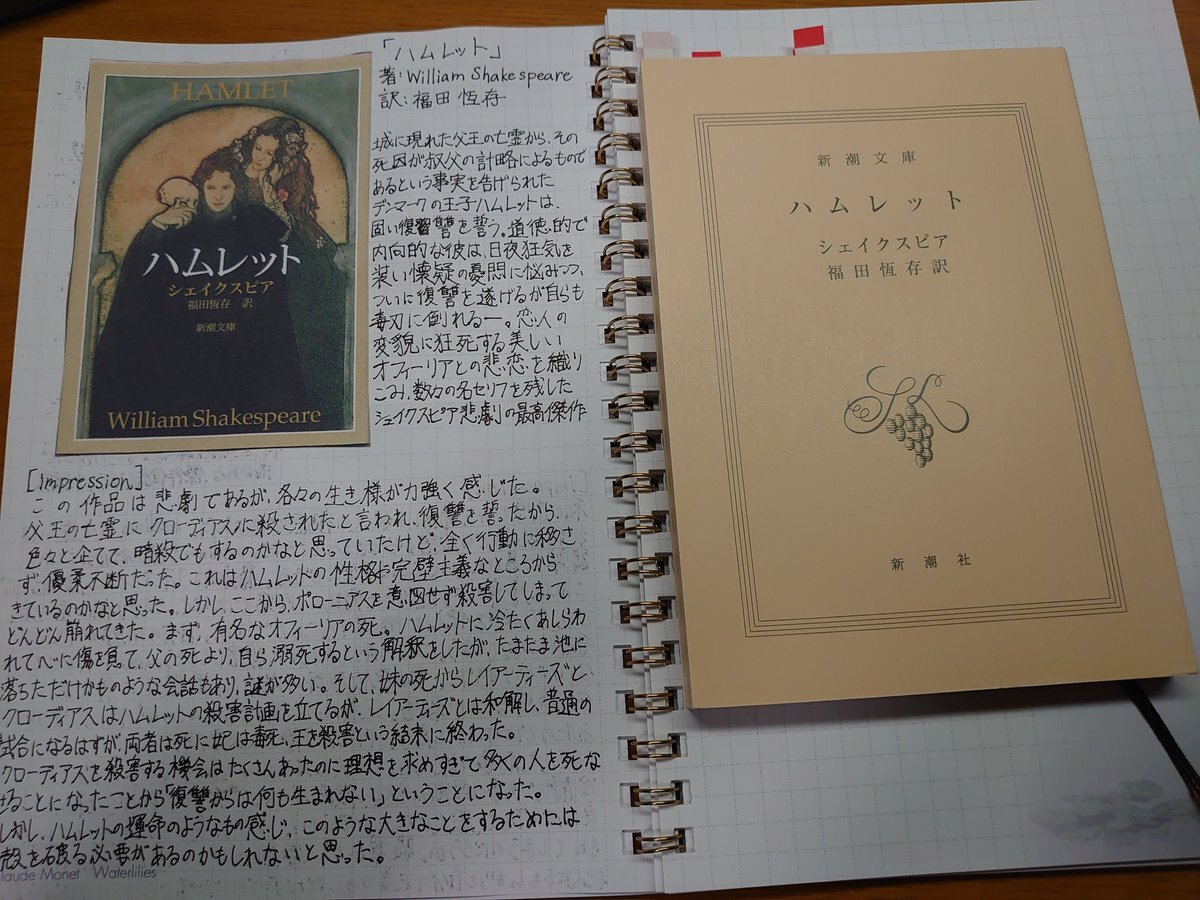 HAMLET
ハムレット
シェイクスピア
福田恆存 訳
新潮文庫
William Shakespeare
「ハムレット」
著:William Shakespeare
訳:福田 恆存
城に現れた父王の亡霊から、その
死因が叔父の計略によるもので
あるという事実を告げられた
デンマークの王子ハムレットは、
固い復讐を誓う。道徳的で
内向的な彼は、日夜狂気を
装い懐疑の憂悶に悩みつつ、
ついに復讐を遂げるが自らも
毒刃に倒れるー。恋人の
変貌に狂死する美しい
オフィーリアとの悲恋を織り
こみ、数々の名セリフを残した
シェイクスピア悲劇の最高傑作
[Impression]
この作品は悲劇であるが、各々の生き様が力強く感じた。
父王の亡霊にクローディアスに殺されたと言われ、復讐を誓ったから、
色々と企てて、暗殺でもするのかなと思っていたけど、全く行動に移さ
ず、優柔不断だった。これはハムレットの性格が完壁主義なところから
きているのかなと思った。しかし、ここから、ポローニアスを意図せず殺害してしまって
どんどん崩れてきた。まず、有名なオフィーリアの死。ハムレットに冷たくあしらわ
れて心に傷を負って、父の死より、自ら溺死するという解釈をしたが、たまたま池に
落ちただけかものような会話もあり、謎が多い。そして、妹の死からレイアーティーズと
クローディアスはハムレットの殺害計画を立てるが、レイアーティーズとは和解し、普通の
試合になるはずが、両者は死に妃は毒死、王を殺害という結末に終わった。
クローディアスを殺害する機会はたくさんあったのに理想を求めすぎて、多くの人を死な
せることになったことから「復讐からは何も生まれない」ということになった。
しかし、ハムレットの運命のようなもの感じ、このような大きなことをするためには
殻を破る必要があるのかもしれないと思った。
Claude Monet Waterlilies
新潮文庫
ハムレット
シェイクスピア
福田恆存訳
新潮社